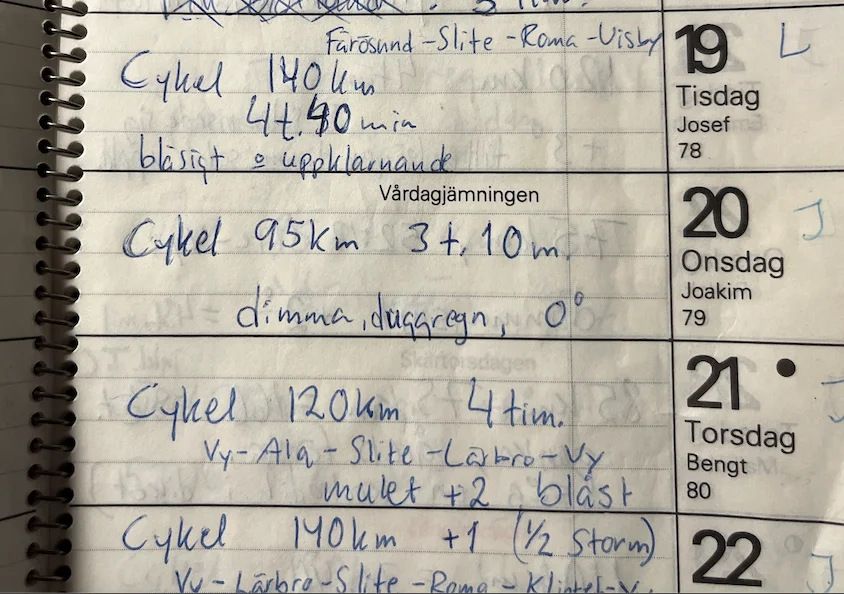 Fårösund - Slite - Roma - Visby
Cykel 140 km
4t. 40 min
blåsigt o uppklarnande
19
Tisdag
Josef
78
L
Vårdagjämningen
Cykel 95km 3t. 10 m.
dimma, duggregn, 0°
20
Onsdag
Joakim
79
J
Cykel 120km 4 tim.
Vy - Ala - Slite - Lärbro - Vy
mulet +2 blåst
21
Torsdag
Bengt
80
Cykel 140km +1 (1/2 Storm)
Vy - Lärbro - Slite - Roma -
22
J